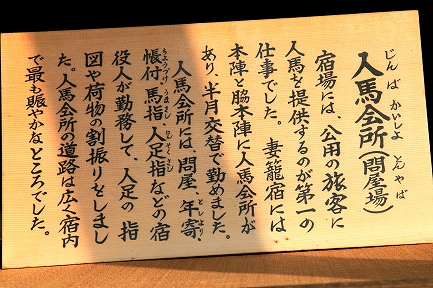 人馬会所(問屋場)
じんば かいしょ とんやば
宿場には、公用の旅客に
人馬を提供するのが第一の
仕事でした。 妻籠宿には
本陣・脇本陣に人馬会所が
あり、半月交替で勤めました。
人馬会所には、問屋、年寄、
としより
帳付、馬指、人足指などの宿
ちょうつけ うまさし にんそくさし
役人が勤務して、人足の指
図や荷物の割振りをしまし
た。人馬会所の道路は広く宿内
で最も賑やかなところでした。